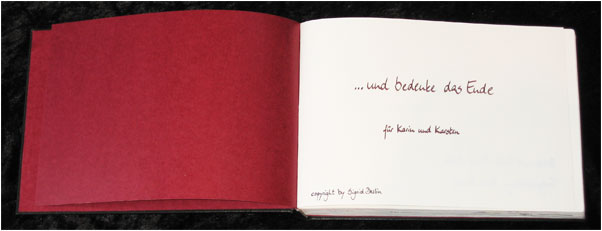 ...und bedenke das Ende
für Karin und Karsten
copyright by Sigrid